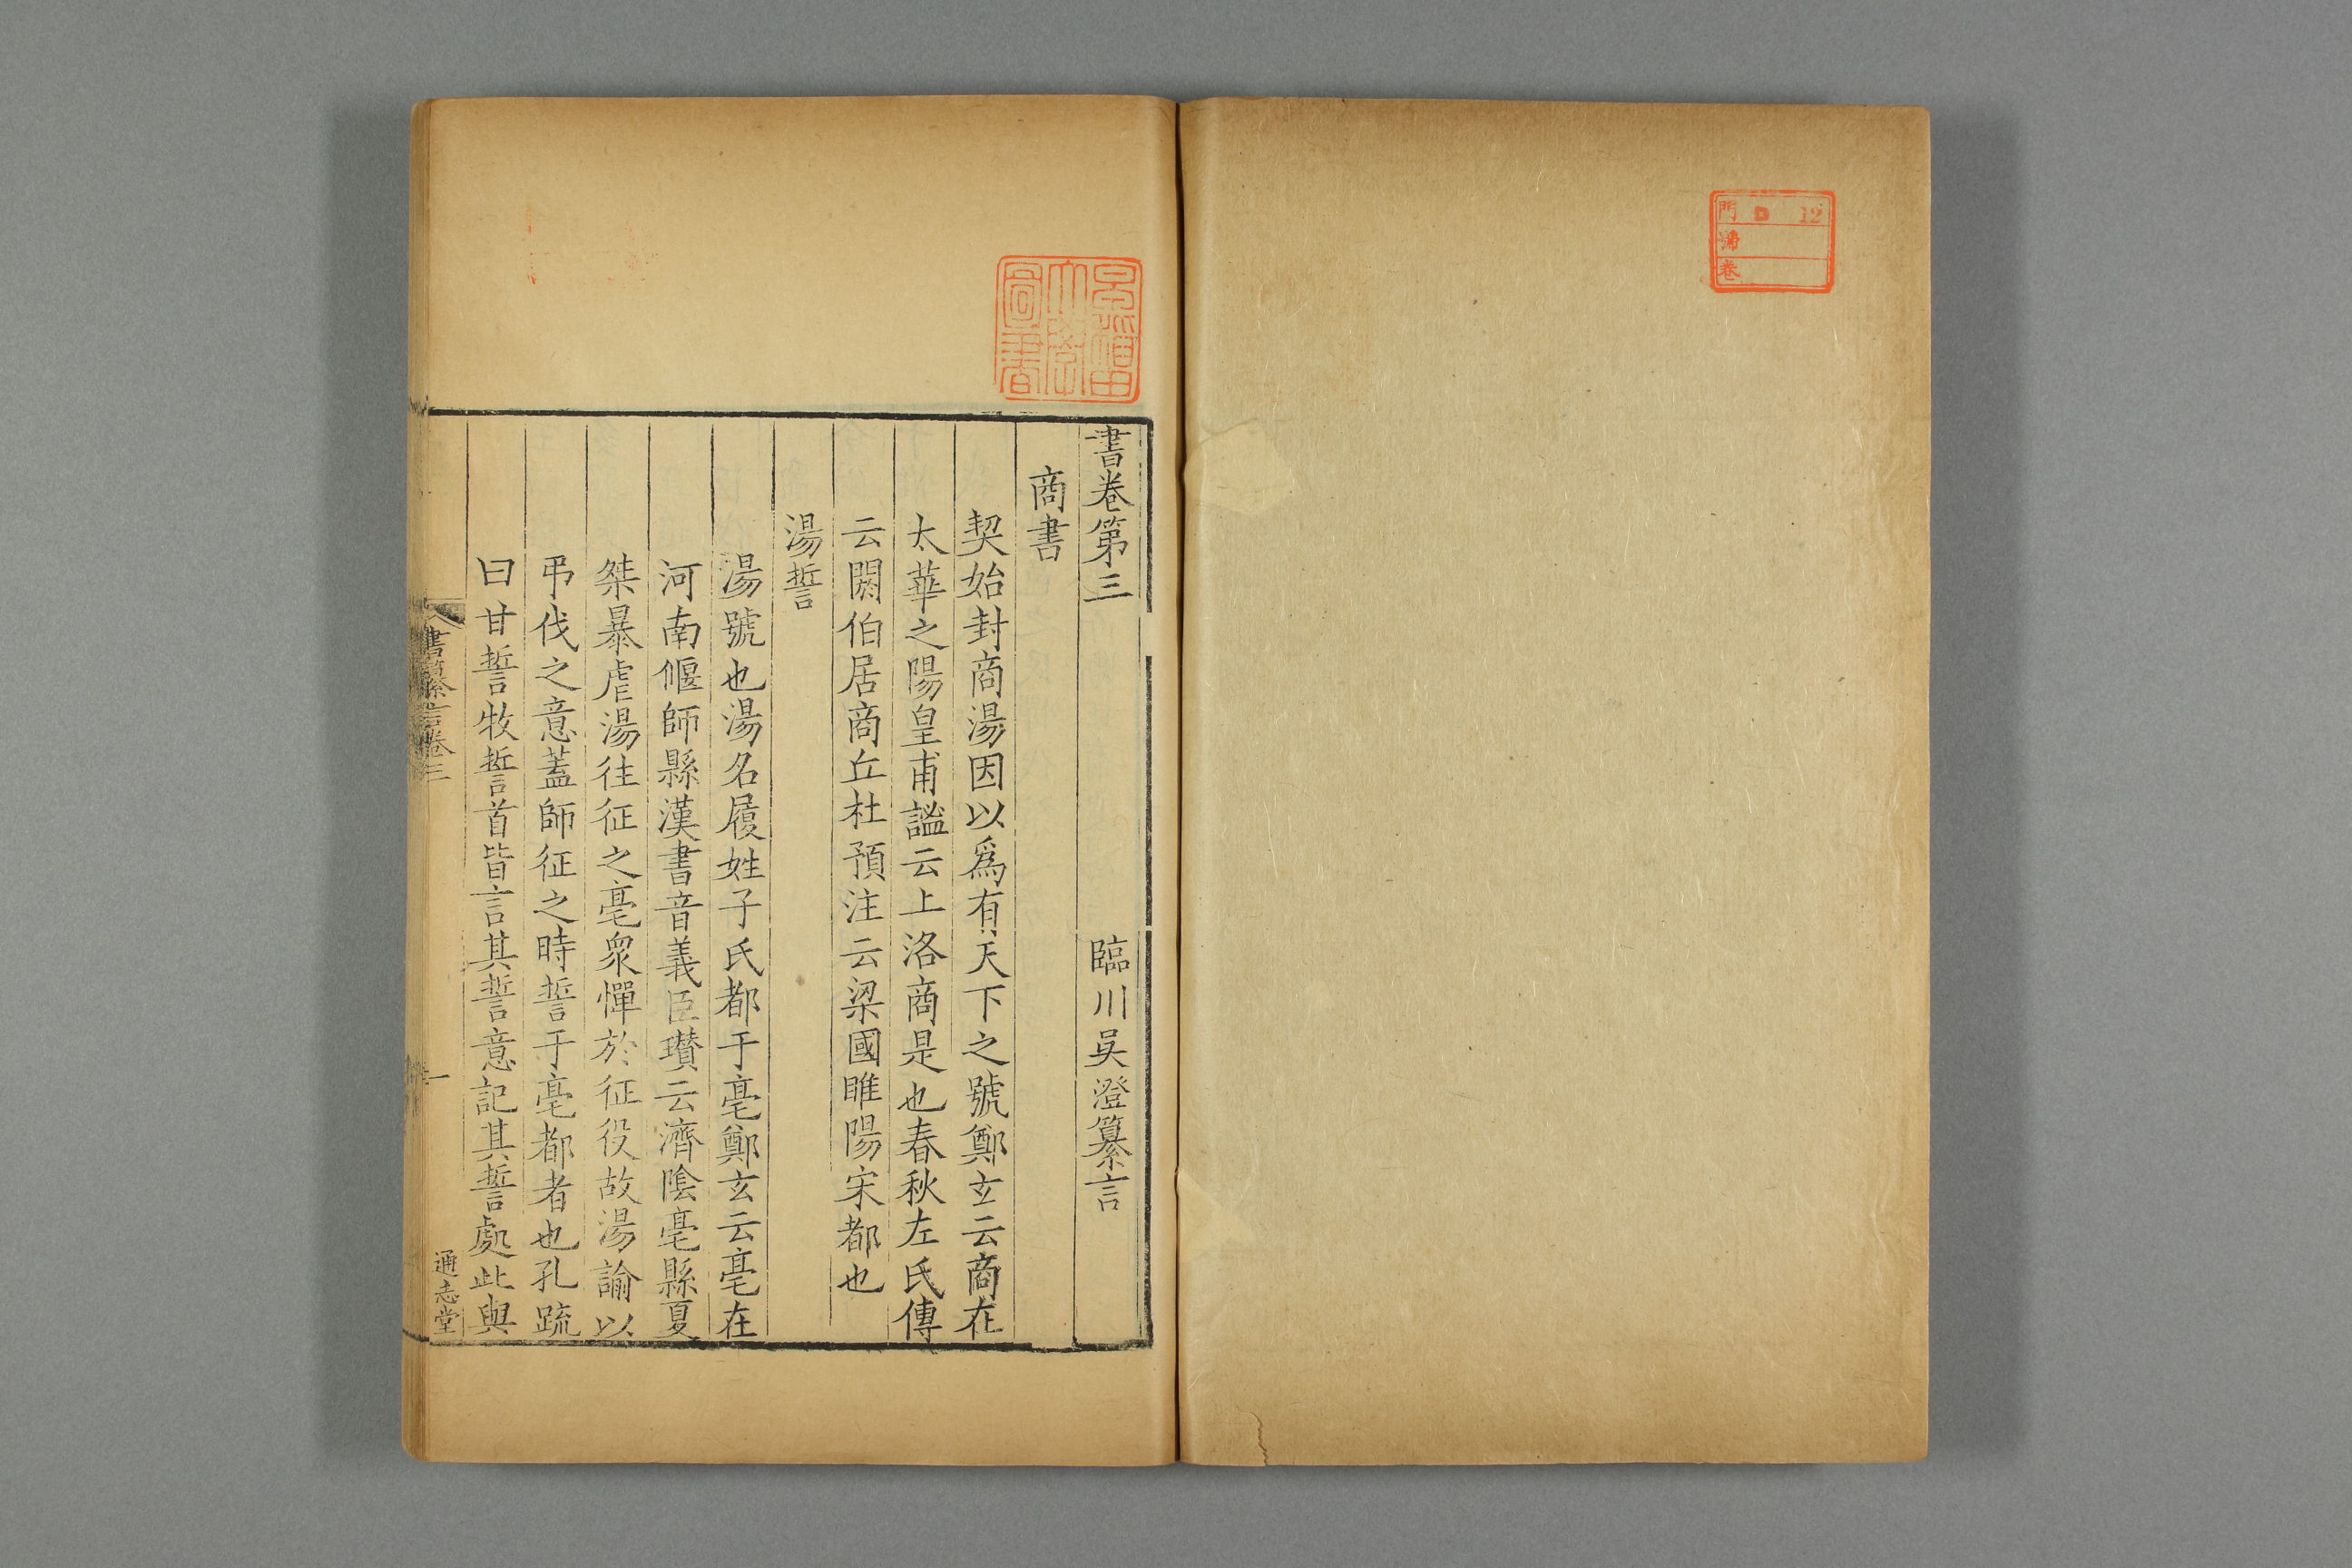 門 D 12
號
卷
書卷第三 臨川吳澄纂言
商書
契始封商湯因以爲有天下之號鄭玄云商在
太華之陽皇甫謐云上洛商是也春秋左氏傳
云閼伯居商丘杜預注云梁國睢陽宋都也
湯誓
湯號也湯名履姓子氏都于亳鄭玄云亳在
河南偃師縣漢書音義臣瓚云濟陰亳縣夏
桀暴虐湯往征之亳衆憚於征役故湯諭以
弔伐之意蓋師征之時誓于亳都者也孔疏
曰甘誓牧誓首皆言其誓意記其誓處此與
書纂言卷三 一 通志堂